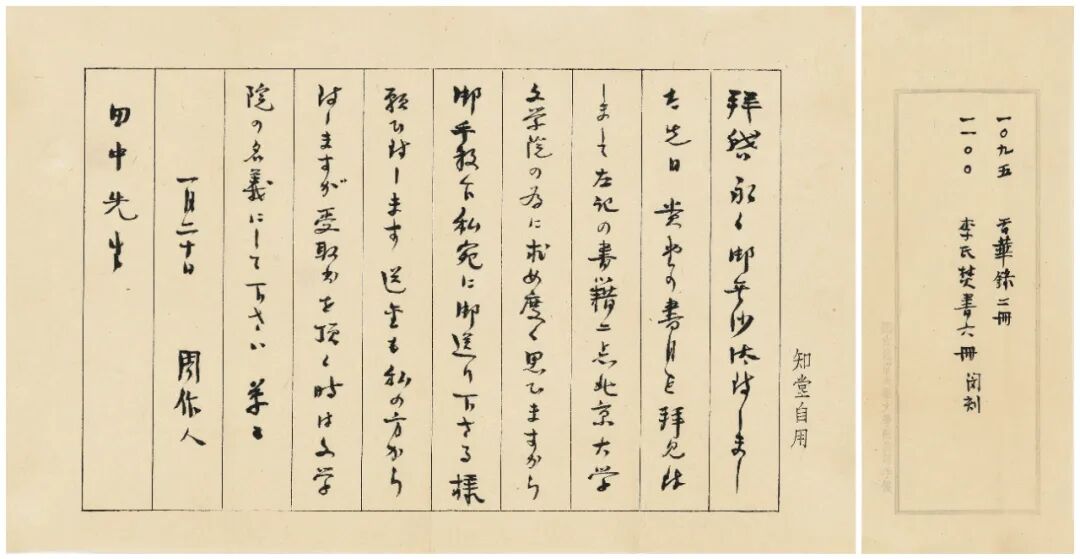 知堂自用
拝啓 永く御無沙汰致しまし
た 先日 貴堂の書目を拝見致
しまして左記の書籍二点北京大学
文学院の為に求め度く思ひますから
御手数乍私宛に御送り下さる様
願ひ致します 送金も私の方から
致しますが受取書を頂く時は文学
院の名義にして下さい 草々
一月二十日 周作人
田中先生
一〇九五 舌華録二冊
一一〇〇 李氏焚書六冊 閔刻